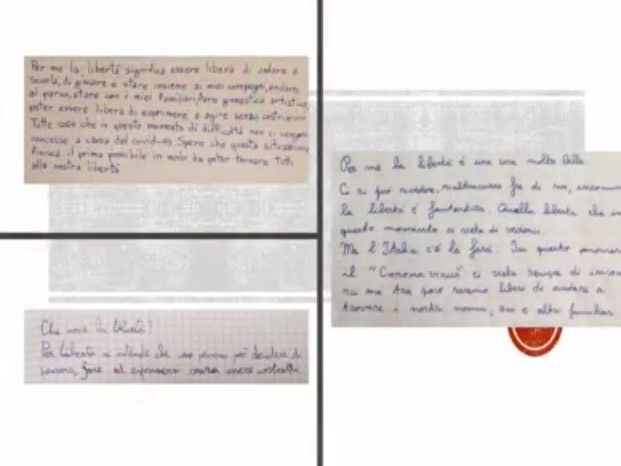 Per me la libertà significa essere libera di andare a
scuola, di giocare e stare insieme ai miei compagni, andare
al parco, stare con i miei familiari, fare ginnastica artistica,
poter essere libera di esprimere e agire senza costrizioni.
Tutte cose che in questo momento di difficoltà non ci vengono
concesse a causa del covid-19. Spero che questa situazione
finisca il prima possibile in modo da poter tornare tutti
alla nostra libertà
Che cos'è la libertà?
Per libertà si intende che una persona può decidere di
pensare, fare ed esprimersi senza essere
Per me la libertà è una cosa molto bella.
Ci si può
la libertà è fantastica. Quella libertà che in
questo momento ci vieta di vederci.
Ma l'Italia c'è la farà. In questo momento
il "Coronavirus" ci vieta
ma saremo liberi di andare a
trovare i nostri nonni, zii e altri familiari